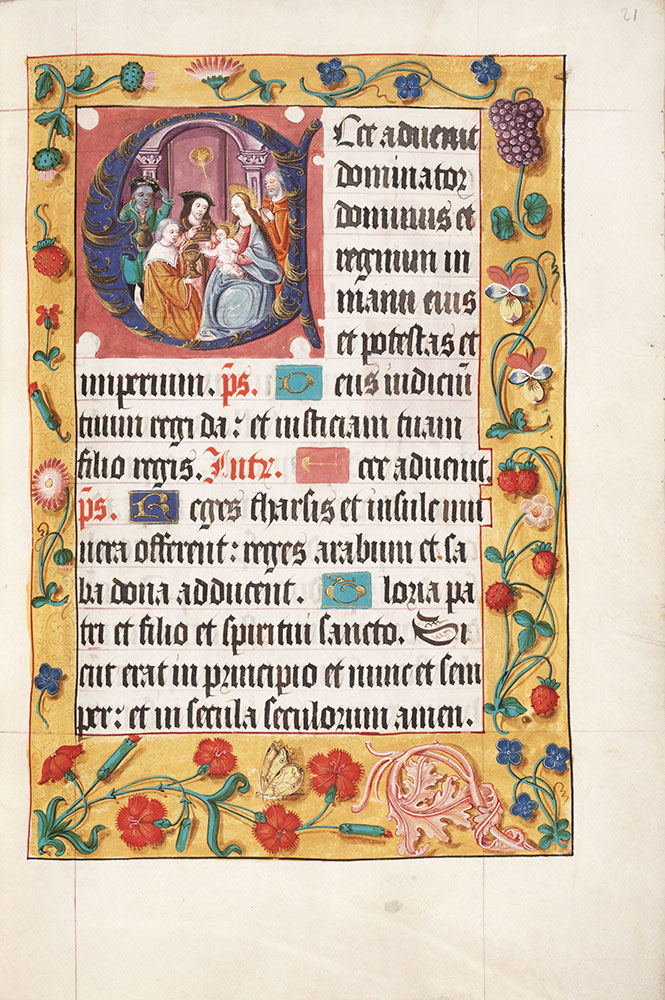 21
Ecce aduenit
dominator
dominus et
regnum in
manu eius
et potestas et
imperium. ps. Deus iudiciū
tuum regi da: et iusticiam tuam
filio regis. Intr. Ecce aduenit.
ps. Reges tharsis et insule mu
nera offerent: reges arabum et sa
ba dona adducent. Gloria pa
tri et filio et spiritui sancto. Si
cut erat in principio et nunc et sem
per: et in secula seculorum amen.